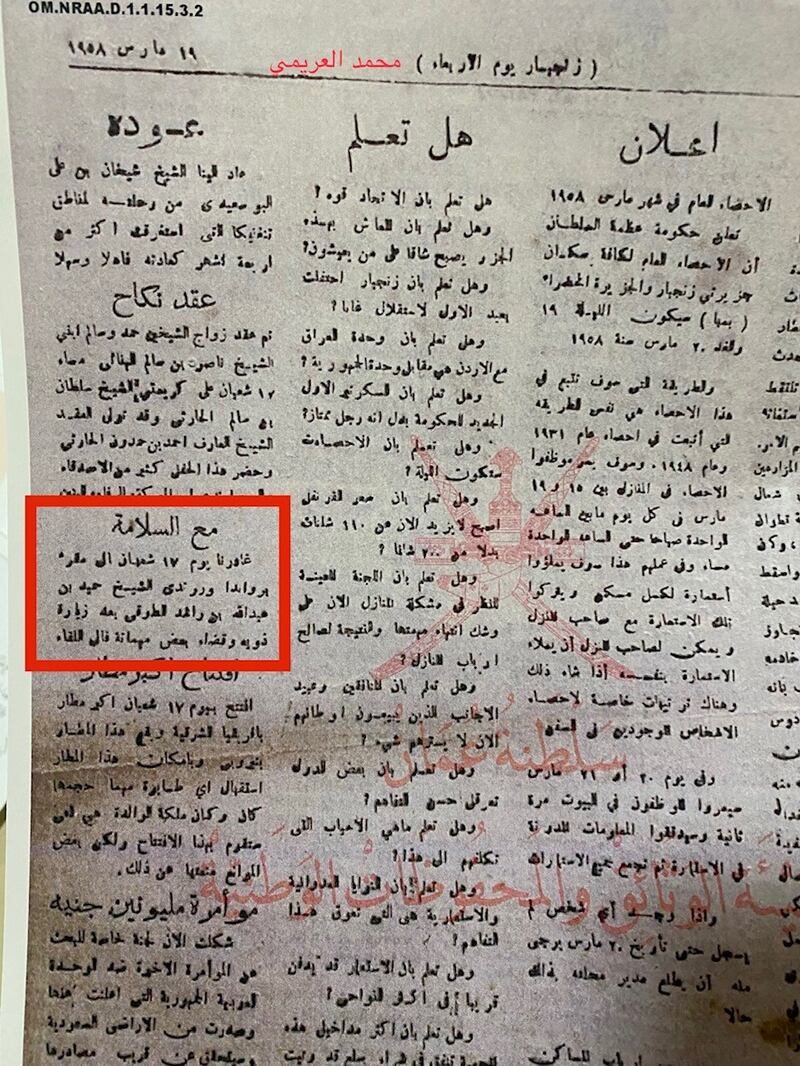 OM.NRAA.D.1.1.15.3.2
( زنجبار يوم الاربعاء )
محمد العريمي
١٩ مارس ١٩٥٨
اعلان
الاحصاء العام في شهر مارس ١٩٥٨
تعلن حكومة عظمة السلطان
أن الاحصاء العام لكافة سكان
جزيرتي زنجبار والجزيرة الخضراء
( بمبا ) سيكون الليلة ١٩
والغد ٢٠ مارس سنة ١٩٥٨
والطريقة التي سوف تتبع في
هذا الاحصاء هي نفس الطريقه
التي أتبعت في احصاء عام ١٩٣١
وعام ١٩٤٨. وسوف يمر موظفوا
الاحصاء في المنازل بين ١٥ و ١٩
مارس في كل يوم مابين الساعه
الواحدة صباحا حتى الساعه الواحدة
مساء وفي عملهم هذا سوف يملؤوا
أستمارة لكل مسكن ويتركوا
تلك الاستمارة مع صاحب المنزل
ويمكن لصاحب المنزل أن يملاء
الاستمارة بنفسه أذا شاء ذلك
وهناك ترتيبات خاصة لاحصاء
الاشخاص الموجودين في السفن
وفي يوم ٢٠ أو ٢١ مارس
سيمروا الموظفون في البيوت مرة
ثانية وسيدققوا المعلومات المدونة
في الاستمارة ثم تجمع جميع الاستمارات
واذا وجد أي شخص لم
يسجل حتى تأريخ ٢٠ مارس يرجى
منه أن يطلع مدير محله بذلك
حالا
هل تعلم
هل تعلم بان الاتحاد قوه ؟
وهل تعلم بان المعاش بهذه
الجزر يصبح شاقا على من يعيشون؟
وهل تعلم بان زنجبار احتفلت
بعيد الاول لاستقلال غانا ؟
وهل تعلم بان وحدة العراق
مع الاردن هي مقابل وحدة الجمهورية ؟
وهل تعلم بان السكرتير الاول
الجديد للحكومة يدل انه رجل ممتاز؟
وهل تعلم بان الاحصاءت
ستكون الليلة ؟
وهل تعلم بان سعر القرنفل
اصبح لايزيد الان عن ١١٠ شلنات
بدلا من ٢٠٠ شلنا ؟
وهل تعلم بان اللجنة المعينة
للنظر في مشكلة المنازل الان على
وشك انتهاء مهمتها والنتيجة لصالح
ارباب المنازل ؟
وهل تعلم بان المنافقين وعبيد
الاجانب الذين يبيعون اوطانهم
الان لا يسترهم شيء ؟
وهل تعلم بان بعض الدول
تعرقل حسن التفاهم ؟
وهل تعلم ماهي الاسباب التي
تكلفهم الى هذا ؟
وهل تعلم بان النوايا العدوانية
والاستعمارية هي التي تعوق هذا
التفاهم ؟
وهل تعلم بان الاستعمار قد يدفن
قريبا في اكثر النواحي ؟
وهل تعلم بان اكثر مداخيل هذه
عودة
عاد الينا الشيخ شيخان بن على
البوسعيدى من رحلته لمناطق
تنغنيكا التى استغرقت اكثر من
اربعة أشهر كعادته فاهلا وسهلا
عقد نكاح
تم عقد زواج الشيخين حمد وسالم ابني
الشيخ ناصر بن سالم الهنائى مساء
١٧ شعبان على كريمتي الشيخ سلطان
بن سالم الحارثى وقد تولى العقد
الشيخ العارف احمد بن حمدون الحارثي
وحضر هذا الحفل كثير من الاصدقاء
مع السلامة
غادرنا يوم ١٧ شعبان الى مقره
بروانـدا وروندى الشيخ حميد بن
عبدالله بن راشد الطوقى بعد زيارة
ذويه وقضاء بعض مهماته فالى اللقاء
افتتاح اكبر مطار
افتتح بيوم ١٧ شعبان اكبر مطار
بافريقيا الشرقية وبقي هذا المطار
بنيروبي وبامكان هذا المطار
استقبال اي طيارة مهما حجمها
كان وكان ملكة الوالدة هي التى
ستقوم بهذا الافتتاح ولكن بعض
الموانع منعتها عن ذلك.
موأمرة مليونين جنيه
شكلت الان لجنة خاصة للبحث
عن الموأمرة الاخيرة ضد الوحدة
العربية الجمهورية التى اعلنت عنها
وصدرت من الاراضى السعودية
سلطنة عمان
هيئة الوثائق والمحفوظات الوطنية